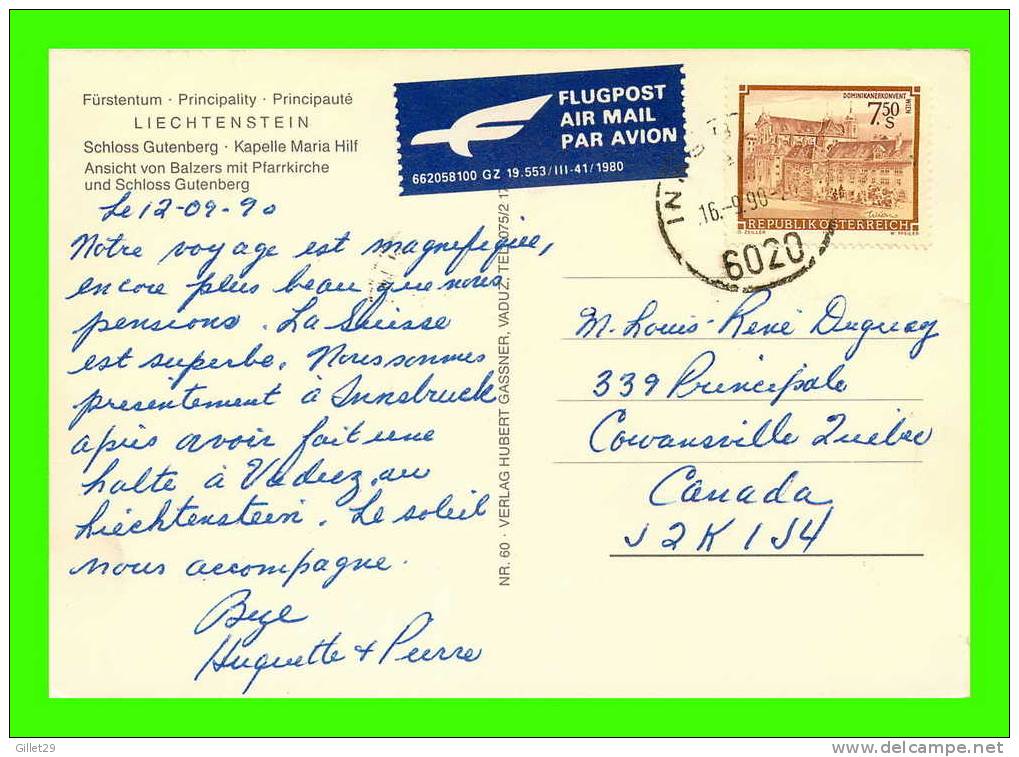 Fürstentum · Principality · Principauté
LIECHTENSTEIN
Schloss Gutenberg · Kapelle Maria Hilf
Ansicht von Balzers mit Pfarrkirche
und Schloss Gutenberg
Le 12-09-90
Notre voyage est magnefique,
encore plus beau que nous
pensions. La Suisse
est superbe. Nous sommes
presentement à Innsbruck
après avoir fait une
halte à Vaduz, au
Liechtenstein. Le soleil
nous accompagne.
Bye
Huguette + Pierre
NR. 60 · VERLAG HUBERT GASSNER, VADUZ, TEL. 075/2 17
FLUGPOST
AIR MAIL
PAR AVION
662058100 GZ 19.553/III-41/1980
DOMINIKANERKONVENT
WIEN
7.50
S
Wien
REPUBLIK ÖSTERREICH
O. ZEILLER
W. PFEILER
16.-9.90
6020
M. Louis-René Duguay
339 Principale
Cowansville Québec
Canada
J2K 1J4
Gillet29
http://www.delcampe.net